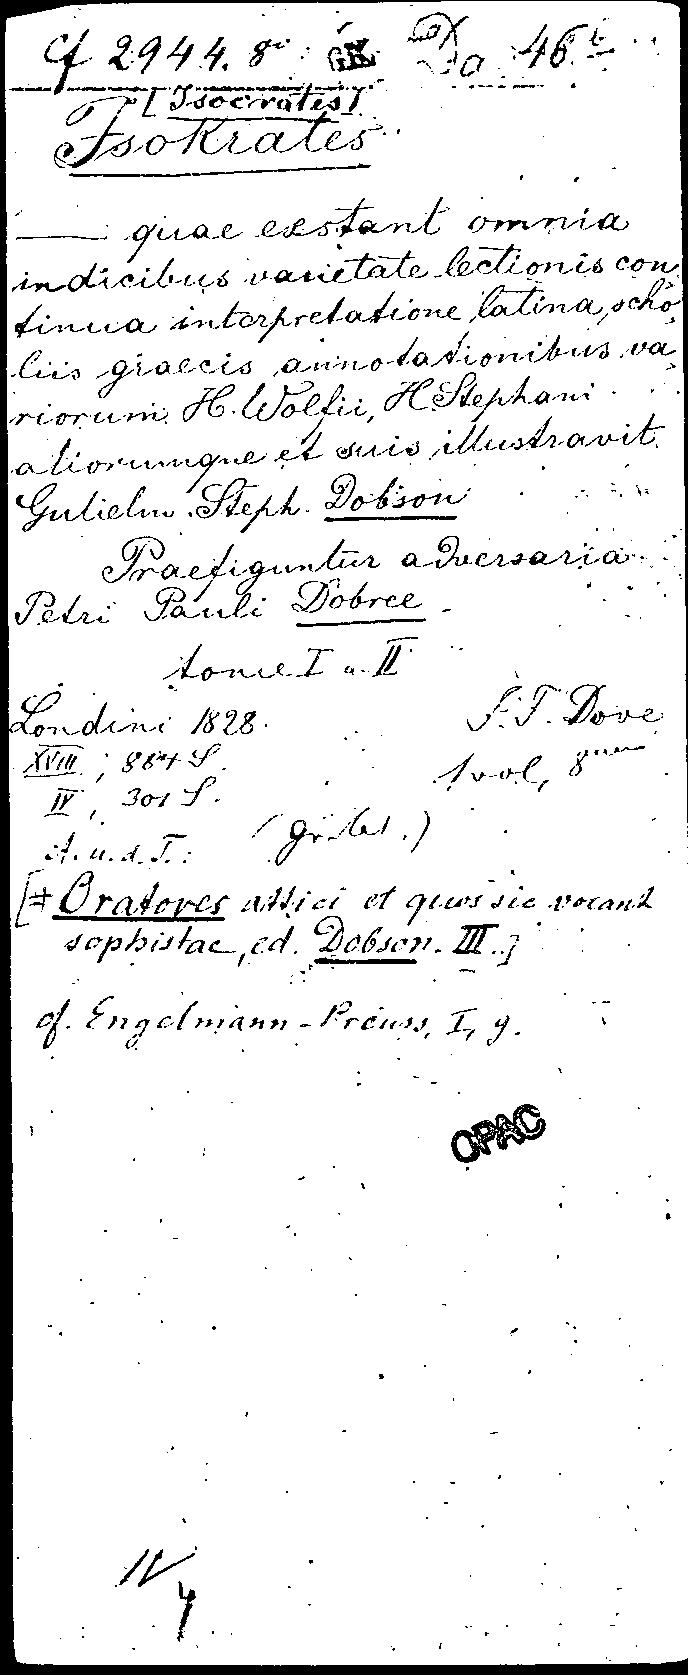 Cf 2944. 8° GK Da 46
[Isocrates]
Isokrates
— quae exstant omnia
indicibus varietate lectionis con
tinua interpretatione latina, scho
liis graecis annotationibus va
riorum H. Wolfii, H Stephani
aliorumque et suis illustravit
Gulielm. Steph. Dobson
Praefiguntur adversaria
Petri Pauli Dobree
tome I u. II
Londini 1828. J. F. Dove
XVIII, 884 S. 1 vol, 8
IV, 301 S.
A. u. d. T.:
[= Oratores attici et quos sic vocant
sophistae, ed. Dobson. III.]
cf. Engelmann-Preuss, I, 9.
OPAC